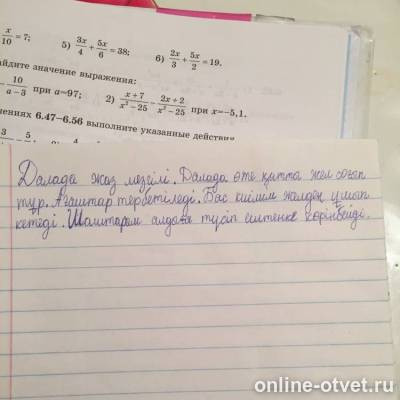 x/10 = 7; 5) 3x/4 + 5x/6 = 38; 6) 2x/3 + 5x/2 = 19.
айдите значение выражения:
10/(a-3) при a=97; 2) (x+7)/(x²-25) - (2x+2)/(x²-25) при x=-5,1.
нениях 6.47–6.56 выполните указанные действия
3 - 5
Далада жаз мезгілі. Далада өте қатта жел соғап
тұр. Ағаштар тербетіледі. Бас киімім желден ұшып
кетеді. Шаштарым алдыға түсіп ештенке көрінбейді.
online-otvet.ru